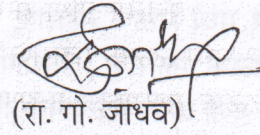 (रा. गो. जाधव)